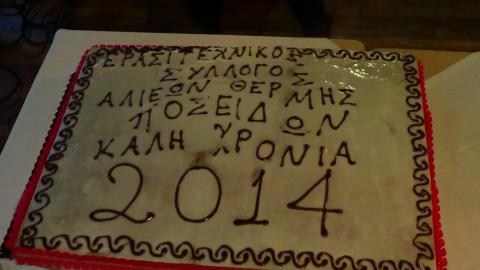 ΕΡΑΣΙΤΕΧΝΙΚΟΣ
ΣΥΛΛΟΓΟΣ
ΑΛΙΕΩΝ ΘΕΡΜΗΣ
ΠΟΣΕΙΔΩΝ
ΚΑΛΗ ΧΡΟΝΙΑ
2014